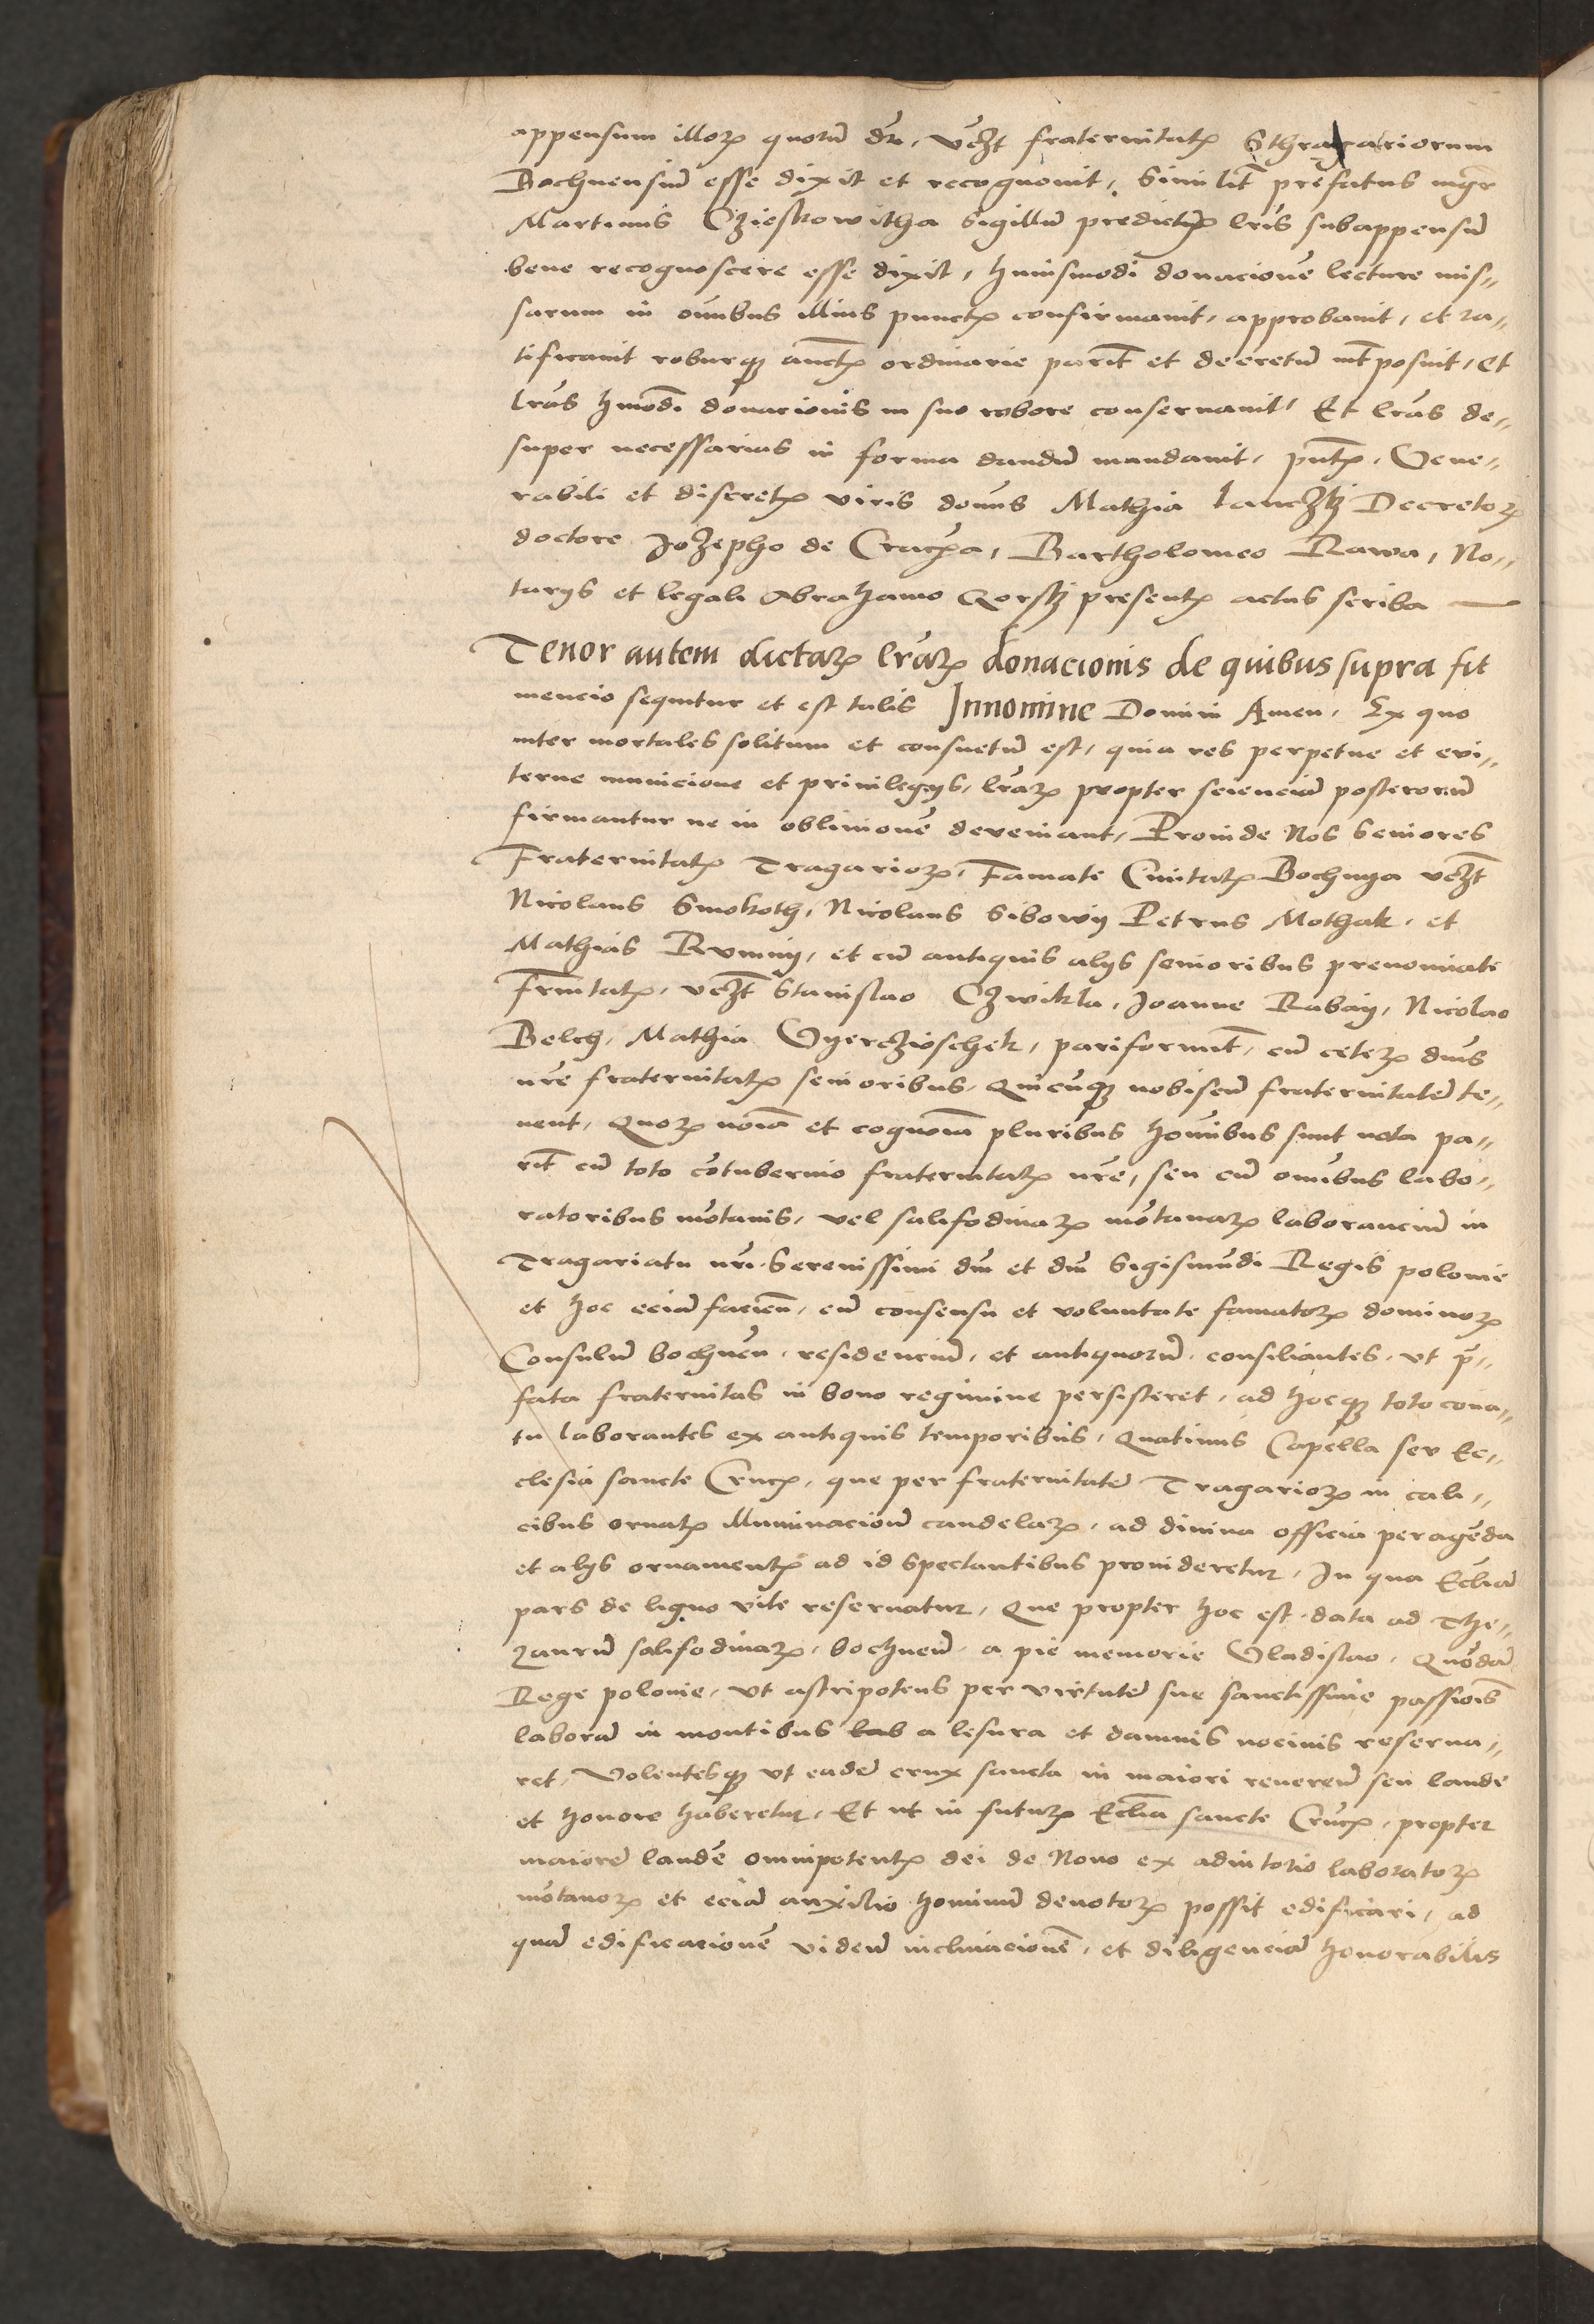 appensum illoꝝ quorũ dr̃, vcȝt fraternitatꝭ Sthragariorum
Bochnensiũ esse dixit et recognouit, Similit̃ prefatus mgr̃
Martinus Cziessowitha Sigillũ predictꝭ lr̃is subappensũ
bene recognoscere esse dixit, huiusmodi donacionẽ lecture mis„
sarum in om̃ibus illius punctꝭ confirmauit, approbauit, et ra„
tificauit roburqꝫ auctꝭ ordinarie parit̃ et decretũ int̃posuit, Et
lr̃as hmõdi donacionis in suo robore conseruauit, Et lr̃as de„
super necessarias in forma dandũ mandauit, pñtꝭ, Vene„
rabili et discretꝭ viris dom̃s Mathia Lanczkj Decretoꝝ
doctore Jozepho de Cracꝭa, Bartholomeo Rawa, No„
tarijs et legali Abrahamo Gorskj presentꝭ actus scriba
Tenor autem dictaꝝ lr̃aꝝ donacionis de quibus supra fit
mencio sequitur et est talis Innomine Domini Amen, Ex quo
inter mortales solitum et consuetũ est, quia res perpetue et evi„
terne municione et priuilegijs, lr̃aꝝ propter scienciã posterorũ
firmantur ne in obliuionẽ deveniant, Proinde Nos Seniores
Fraternitatꝭ Tragarioꝝ, Famate Ciuitatꝭ Bochnya vcȝt
Nicolaus Smokoth, Nicolaus Sibowij Petrus Mothak, et
Mathias Rvmny, et cũ antiquis alijs senioribus prenominate
Fr̃nitatꝭ, vcȝt Stanislao Czwikla, Joanne Rabaÿ, Nicolao
Belch, Mathia Vyercziochek, pariformit̃, cũ ceteꝝ dñis
nr̃e fraternitatꝭ senioribus, Quicũqꝫ nobiscũ fraternitatẽ te„
nent, Quoꝝ noĩa et cognoĩa pluribus hoĩnibus sunt nota pa„
rit̃ cũ toto cõtubernio fraternitatꝭ nr̃e, seu cũ om̃ibus labo„
ratoribus mõtanis, vel salifodinaꝝ mõtanaꝝ laboranciũ in
Tragariatu nr̃i Serenissimi dñi et dñi Sigismũdi Regis polonie
et hoc eciã facieñ, cũ consensu et voluntate famatoꝝ dominoꝝ
Consulũ bochneñ, residenciũ, et antiquorũ, consiliantes, vt p̃„
fata fraternitas in bono regimine persisteret, ad hocqꝫ toto cona„
tu laborantes ex antiquis temporibus, Quatinus Capella seu Ec„
clesia sancte Crucꝭ, que per fraternitatẽ Tragarioꝝ in cali„
cibus ornatꝭ illuminacionũ candelaꝝ, ad diuina officia peragẽda
et alijs ornamentꝭ ad id spectantibus prouideretur, In qua Ecl̃ia
pars de ligno vite reseruatur, Que propter hoc est data ad The„
zaurũ salifodinaꝝ, bochneñ, a pie memorie Vladislao, Quõdã
Rege polonie, vt astripotens per virtutẽ sue sanctissime passiois̃
laborũ in montibus lab a lesura et damnis nociuis reserua„
ret, Volentesqꝫ vt eadẽ crux sancta in maiori reuereñ seu laude
et honore haberetur, Et ut in futuꝝ Ecl̃ia sancte Crucꝭ, propter
maiorẽ laudẽ omnipotentꝭ dei de Nouo ex adiutorio laboratoꝝ
mõtanoꝝ et eciã auxilio hominũ deuotoꝝ possit edificari, ad
quã edificacionẽ videñ inclinacionẽ, et diligenciã honorabilis